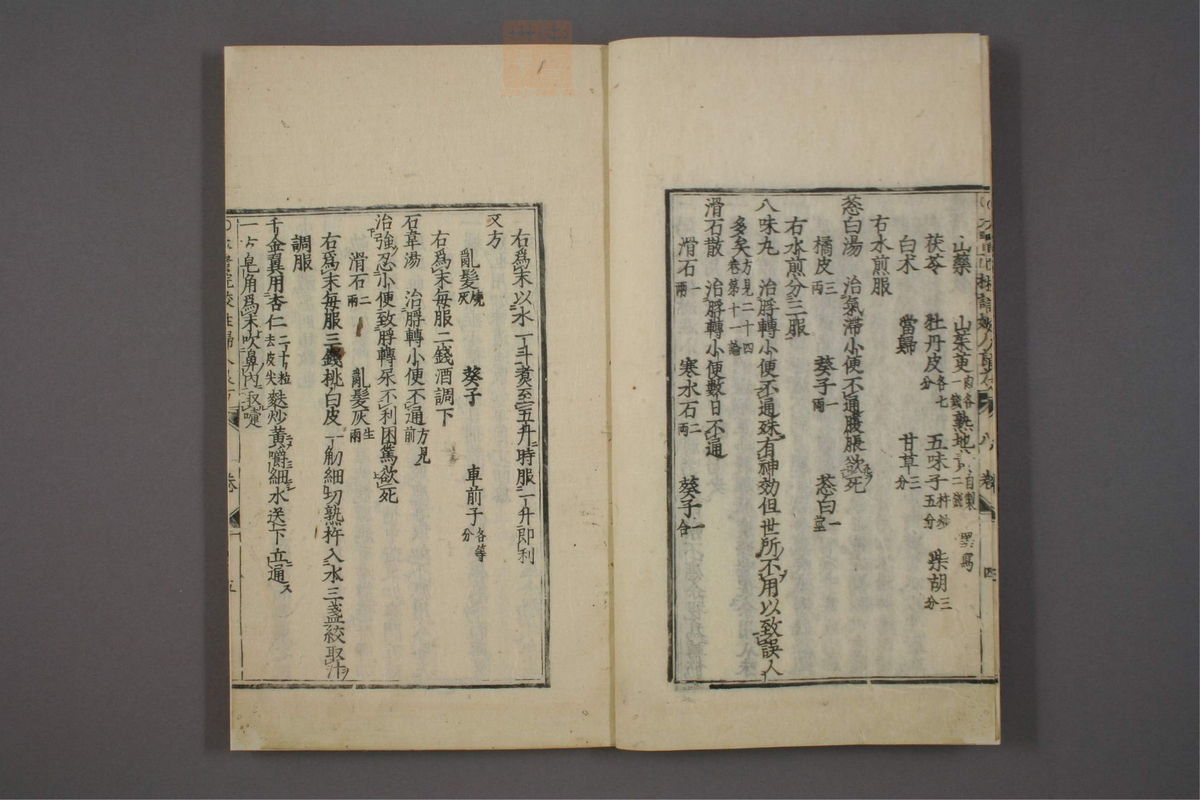 山藥 山茱萸肉各一錢 熟地自製二錢
茯苓 牡丹皮各七分 五味子杵炒五分 柴胡三分
白朮 當歸 甘草二分
右水煎服
葱白湯 治氣滯小便不通腹脹欲死
橘皮三兩 葵子一兩 葱白一莖
右水煎分三服
八味丸 治脬轉小便不通殊有神効但世所不用以致誤人
多矣方見二十四卷第十一論
滑石散 治脬轉小便數日不通
滑石一兩 寒水石二兩 葵子一合
右爲末以水一斗煑至五升時服一升即利
又方
亂髮燒灰 葵子 車前子各等分
右爲末每服二錢酒調下
石韋湯 治脬轉小便不通方見前
治強忍小便致脬轉尿不利困篤欲死
滑石二兩 亂髮灰半兩
右爲末每服三錢桃白皮一觔細切熟杵入水三盞絞取汁
調服
千金翼用杏仁二十粒去皮尖麩炒黄嚼細水送下立通
一方皂角爲末吹鼻內取嚏